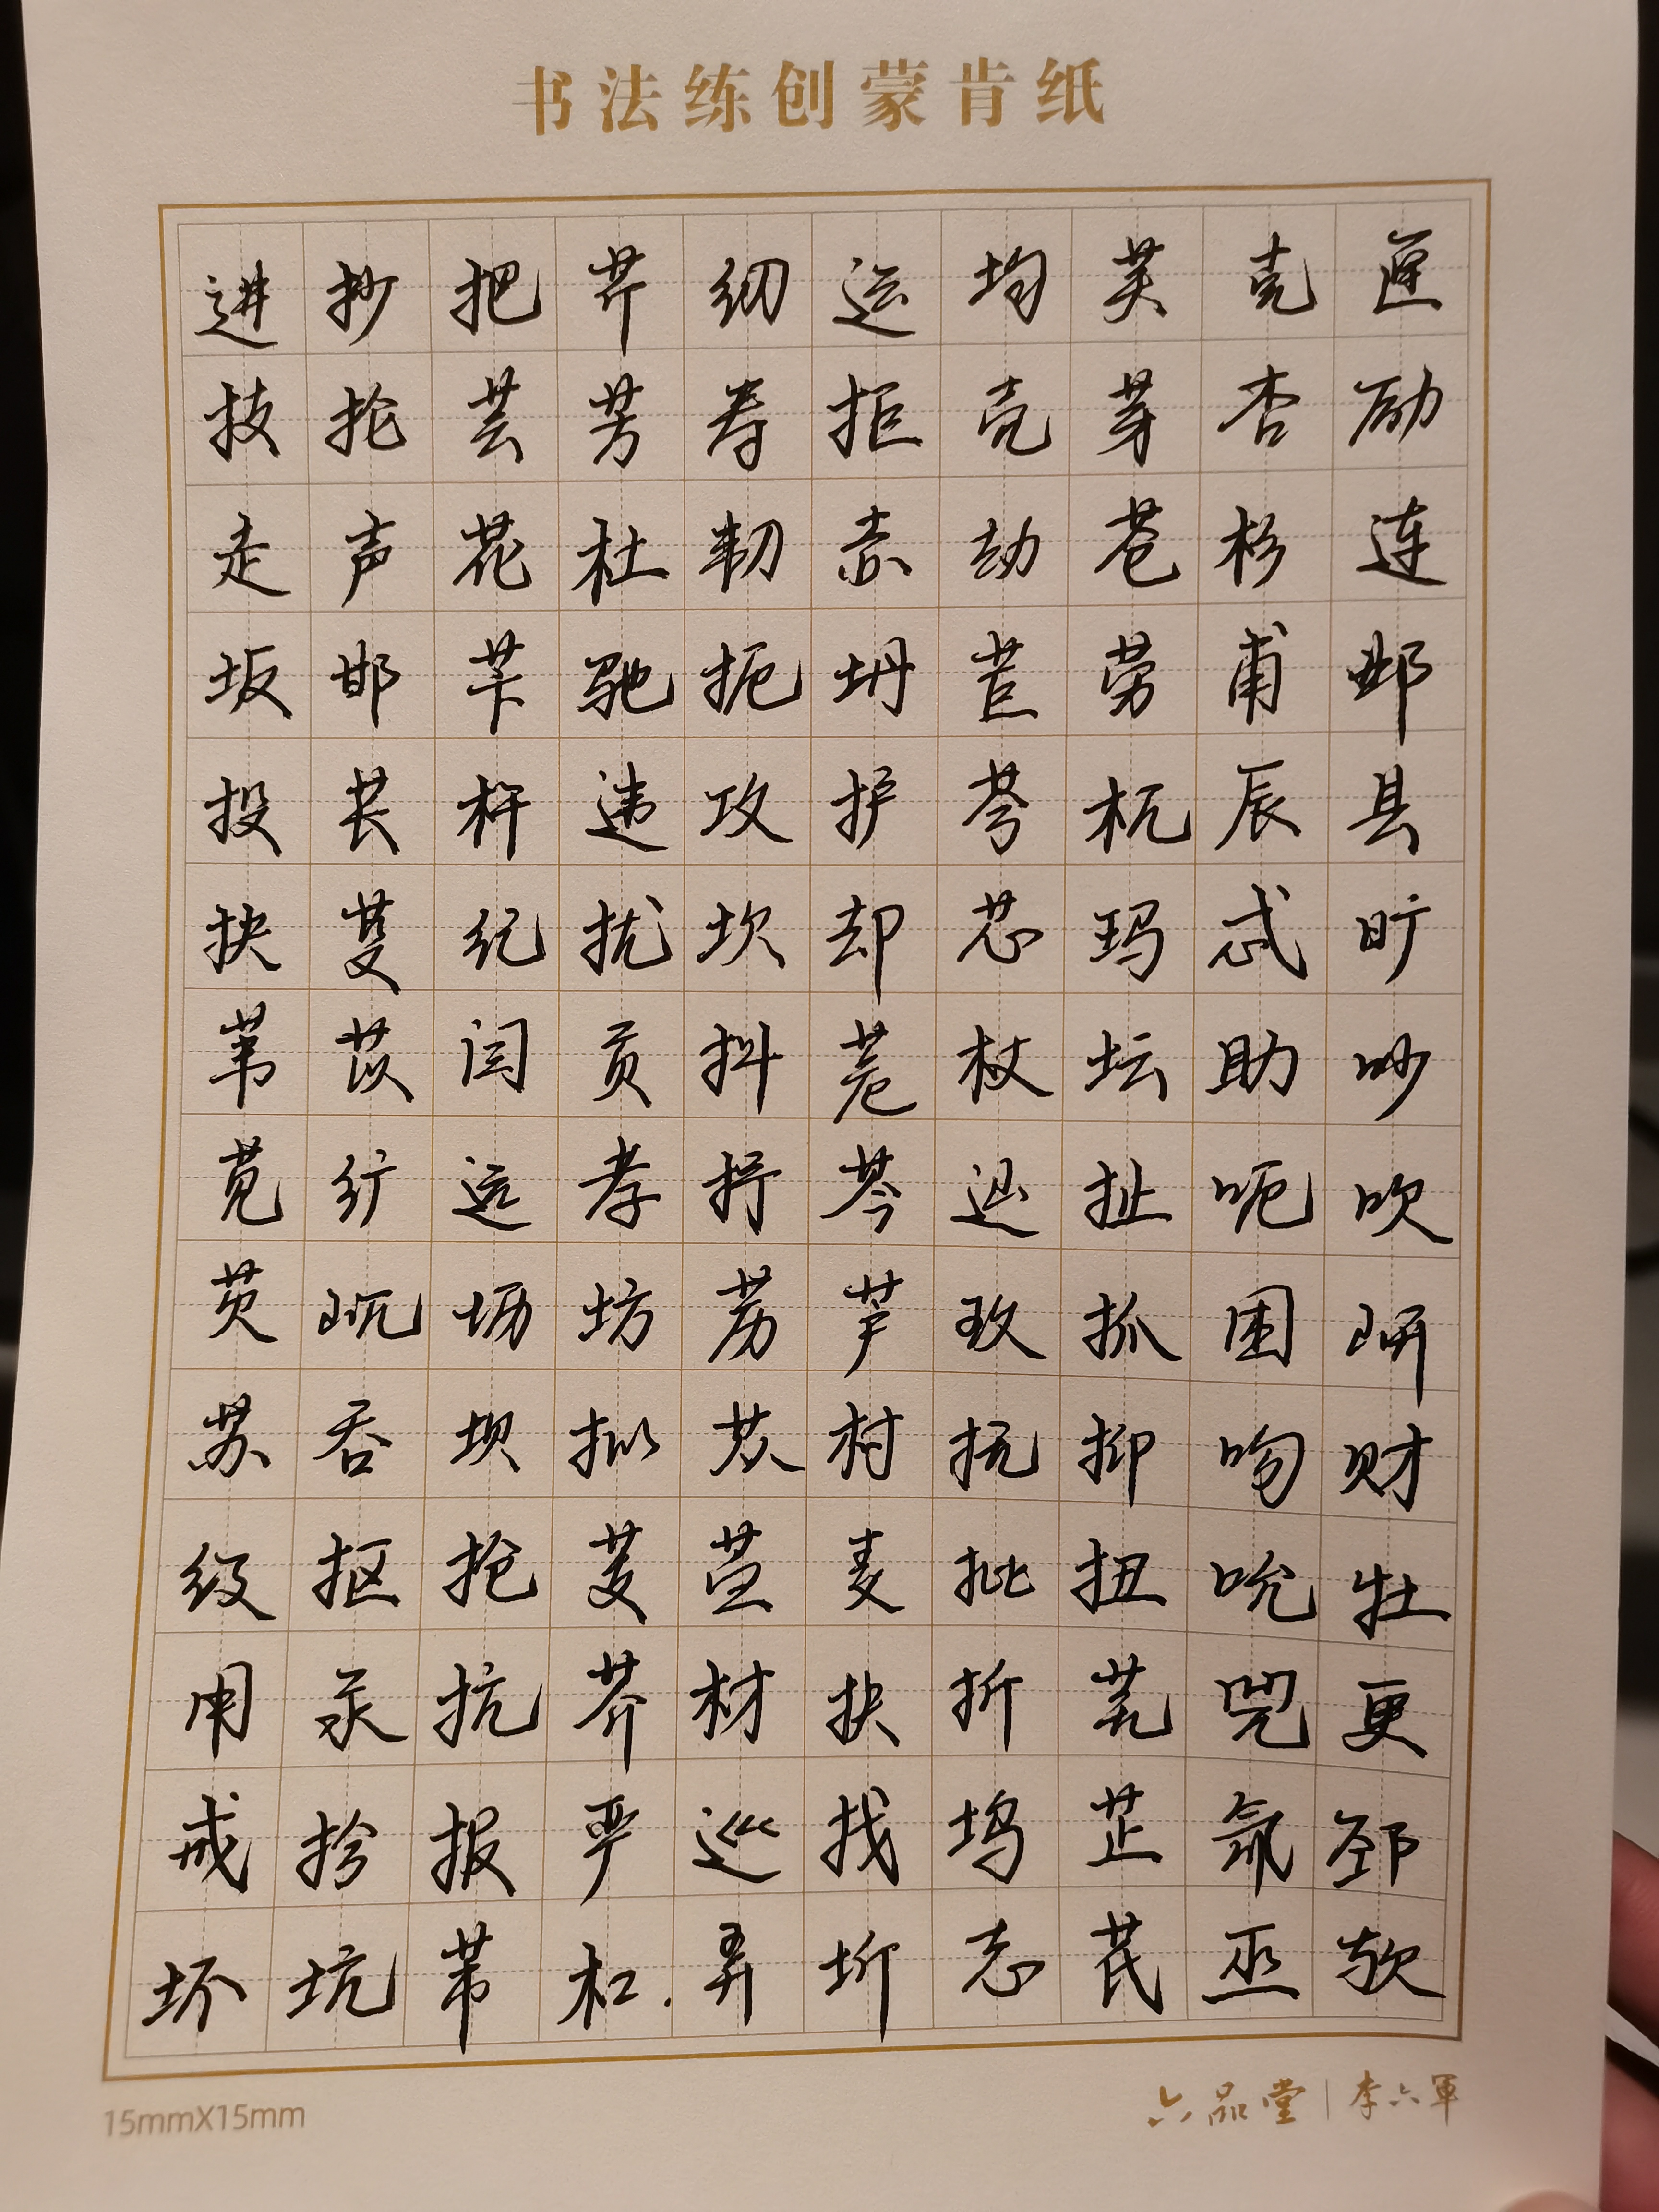 书法练创蒙肯纸
进抄把芹纫运均芙克匣
技抡芸芳寿拒壳芽杏励
走声花杜韧赤劫苍杉连
坂邯苄驰扼坍苣劳甫邺
投苌杆违攻护杌辰县
抉芟纪扰坎却芯玛忒旷
苇苡闫贡抖苊杖坛助吵
苋纩远孝抒芩扯呃吹
芡岏坜坊苈芦玫抓困岍
苏吞坝拟苁村抚抑吻财
级抠抢芰麦批扭吮牡
甪汞抗芥材扶折芜兕更
戒报严巡找坞芷氚邳
坏坑芾杠弄圻志芪巫欤
15mmX15mm
六品堂|李六軍